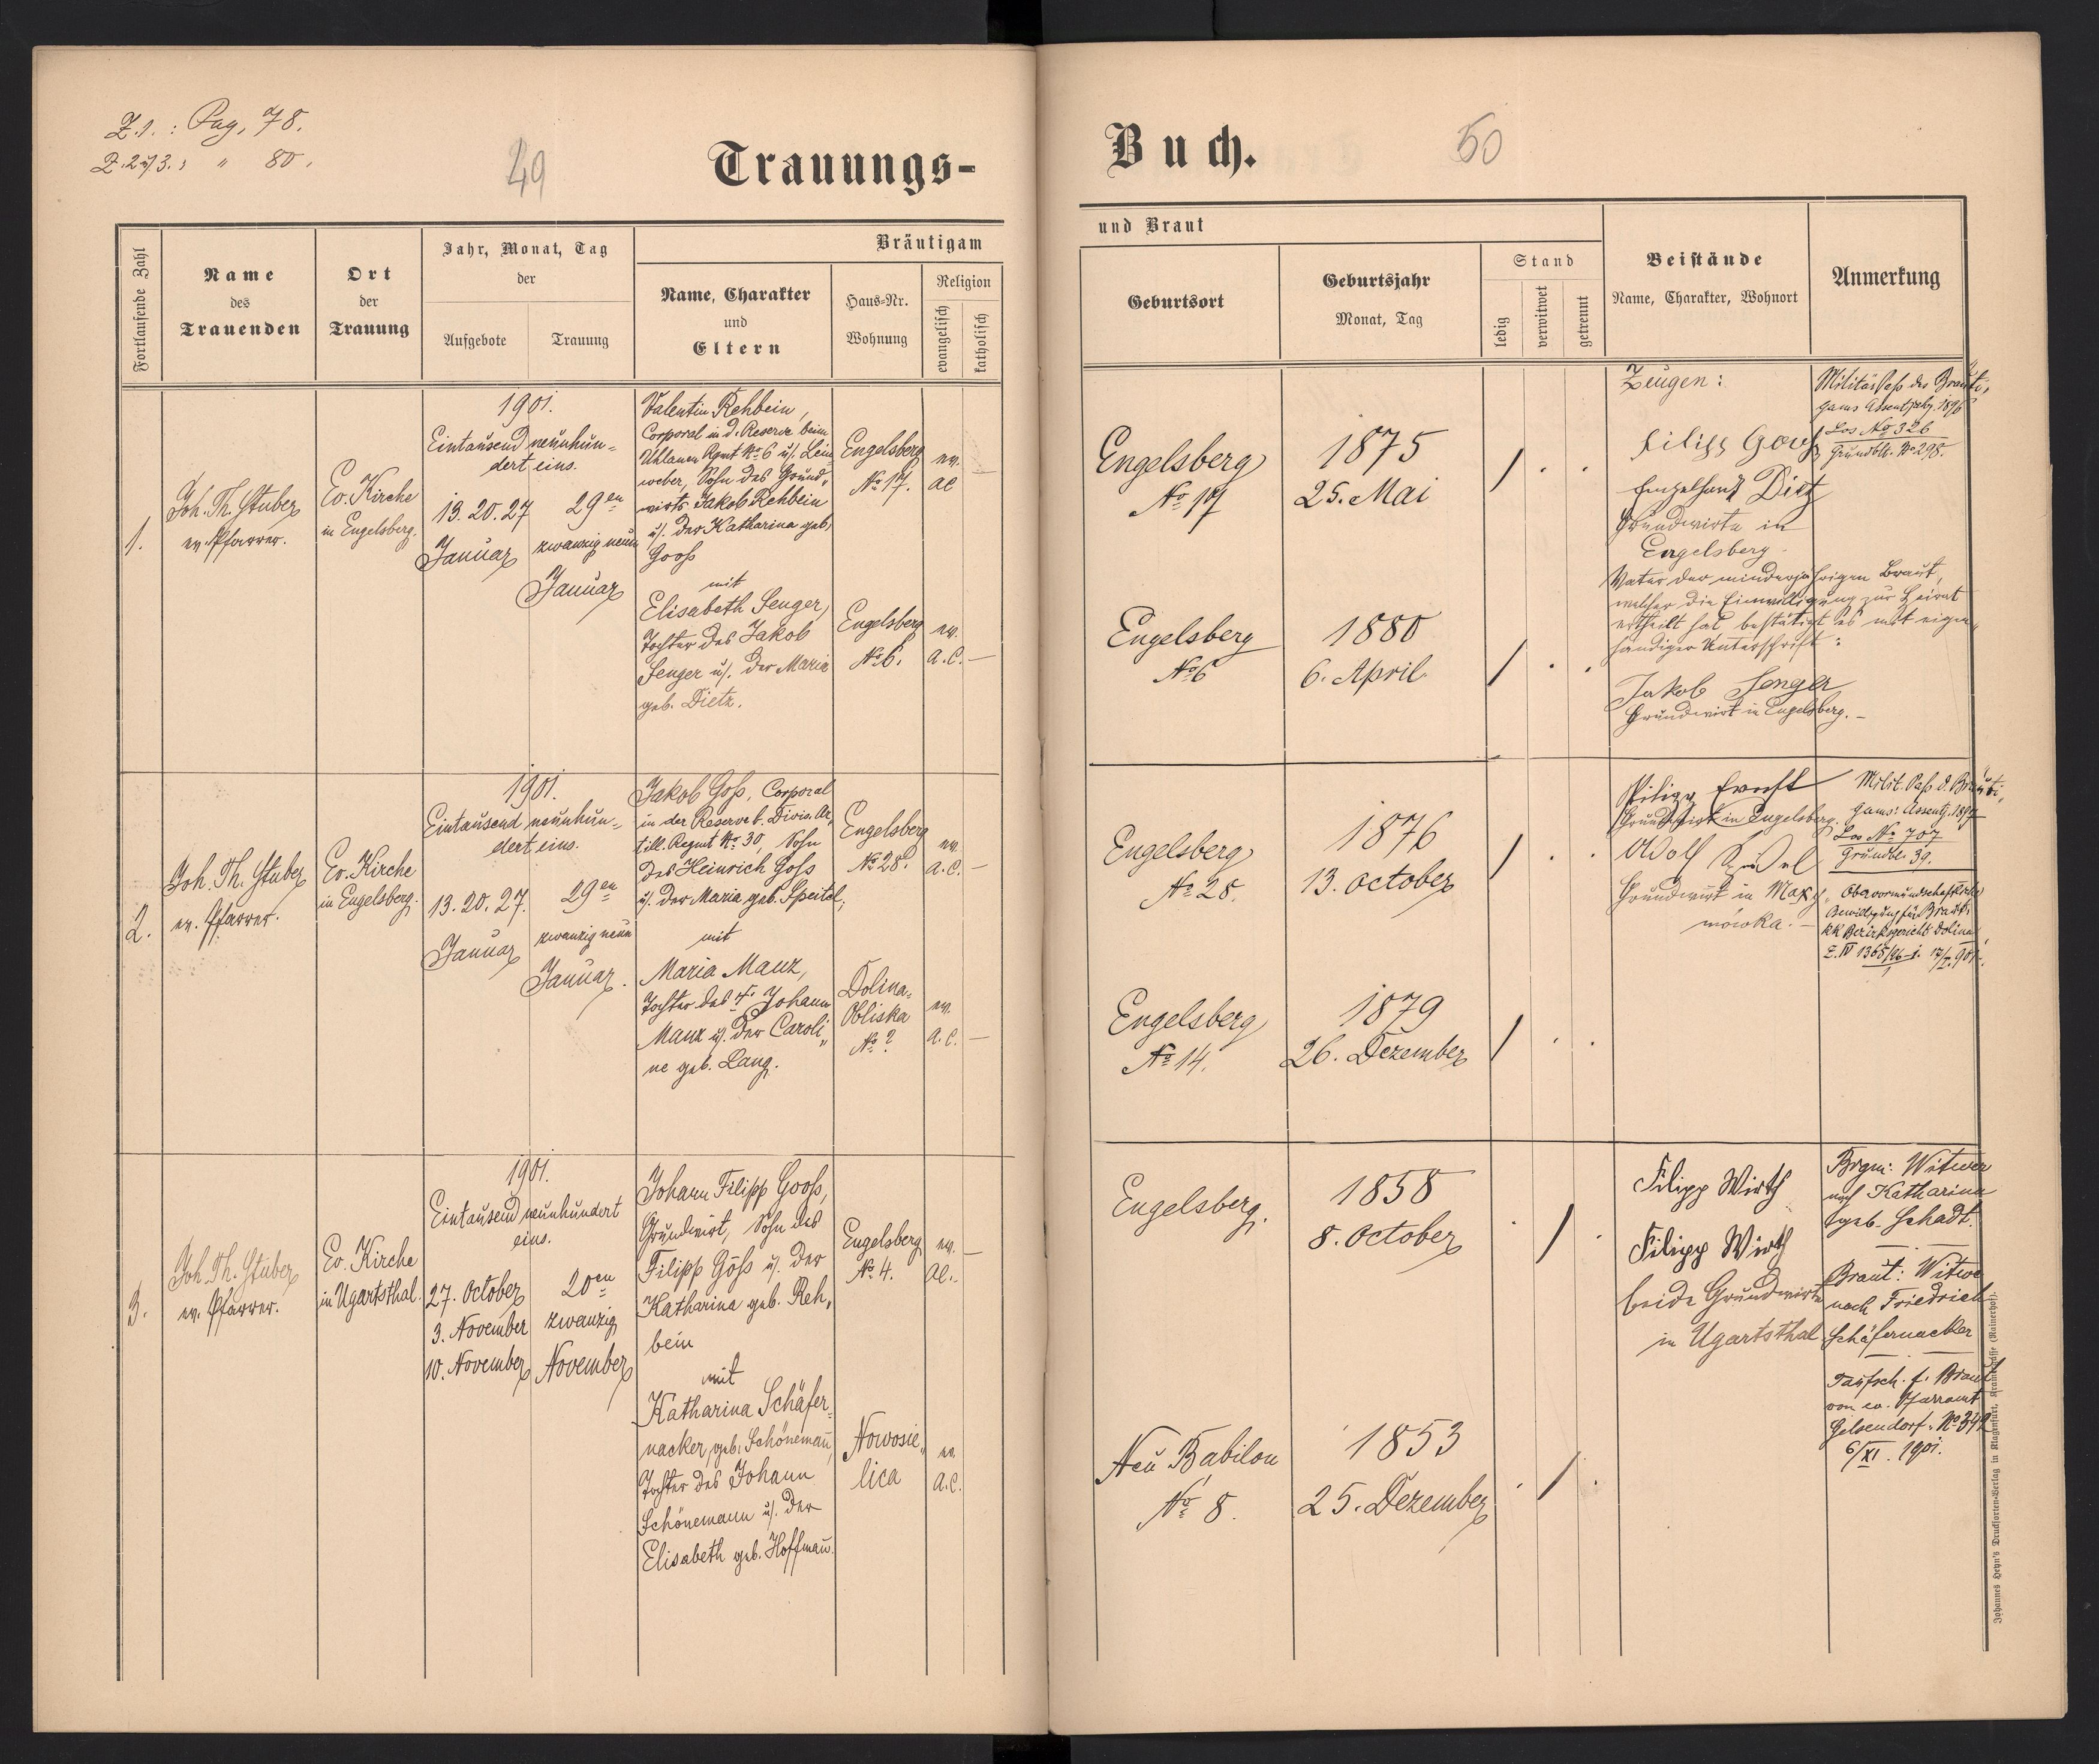 Z. 1. : Pag. 78.
Z. 2 u. 3. : " 80.
49
Trauungs-
Fortlaufende Zahl
Name
des
Trauenden
Ort
der
Trauung
Jahr, Monat, Tag
der
Aufgebote
Trauung
Bräutigam
Name, Charakter
und
Eltern
Haus-Nr.
Wohnung
Religion
evangelisch
katholisch
1.
Joh. Th. Stuber
ev. Pfarrer.
Ev. Kirche
in Engelsberg.
1901.
Eintausend neunhun-
dert eins.
13. 20. 27
Januar
29en
zwanzig neun
Januar
Valentin Rehbein,
Corporal in d. Reserve beim
Uhlanen Rgmt No 6 u. Lein
weber, Sohn des Grund-
wirts Jakob Rehbein
u. der Katharina geb.
Gooß
mit
Elisabeth Senger,
Tochter des Jakob
Senger u. der Maria
geb. Dietz.
Engelsberg
No 17.
ev.
ac
—
Engelsberg
No 6.
ev.
a.c. —
2.
Joh. Th. Stuber
ev. Pfarrer.
Ev. Kirche
in Engelsberg.
1901.
Eintausend neunhun-
dert eins.
13. 20. 27.
Januar
29en
zwanzig neun
Januar.
Jakob Goß, Corporal
in der Reserve b. Divis. Ar-
till. Regmt No 30, Sohn
des Heinrich Goß
u. der Maria geb. Speitel,
mit
Maria Manz,
Tochter des † Johann
Manz u. der Caroli-
ne geb. Lang.
Engelsberg
No 28.
ev.
a.c. —
Dolina-
Obliska
No ?
ev.
a.c. —
3.
Joh. Th. Stuber
ev. Pfarrer.
Ev. Kirche
in Ugartsthal.
1901.
Eintausend neunhundert
eins.
27. October
3. November
10. November
20en
zwanzig
November
Johann Filipp Gooß,
Grundwirt, Sohn des
Filipp Goß u. der
Katharina geb. Reh-
bein
mit
Katharina Schäfer-
nacker, geb. Schönemañ,
Tochter des Johann
Schönemann u. der
Elisabeth geb. Hoffmañ.
Engelsberg
No 4.
ev. —
ac.
Nowosie-
lica
ev.
a.c.
Buch.
50
und Braut
Geburtsort
Geburtsjahr
Monat, Tag
Stand
ledig
verwitwet
getrennt
Beistände
Name, Charakter, Wohnort
Anmerkung
Engelsberg
No 17
1875
25. Mai
/ . .
Engelsberg
No 6
1880
6. April
/ . .
Zeugen:
Filipp
Dietz
Grundwirte in
Engelsberg.
Vater der minderjährigen Braut,
welcher die Einwilligung zur Heirat
ertheilt hat bestätigt es mit eigen-
händiger Unterschrift:
Jakob Senger
Grundwirt in Engelsberg. —
Militärpaß des Bräuti-
gams Assentjahrg. 1896
Los No 326
Grundbl. No 298.
Engelsberg
No 28.
1876
13. October
/ . .
Engelsberg
No 14.
1879
26. Dezember
/ . .
Grundwirt in Engelsberg.
Adolf
Grundwirt in Maxy-
mówka. —
Milit. Paß d. Bräuti-
gams: Assentj. 1897
Los No 707
Grundbl. 39.
Obervormundschaftliche
Bewilligung für Braut:
kk Bezirksgericht Dolina
Engelsberg.
1858
8. October
. / .
Neu Babilon
No 8.
1853
25. Dezember
. / .
Filipp Wirth
Filipp Wirth
beide Grundwirte
in Ugartsthal
Brgm: Witwer
nach Katharina
geb. Schadt.
—
Braut: Witwe
nach Friedrich
Schäfernacker
—
Taufsch. f. Braut
von ev. Pfarramt
Gelsendorf. No 342
6/XI. 1901.
Johannes Heyn's Drucksorten-Verlag in Klagenfurt, Kramergasse (Rainerhof).